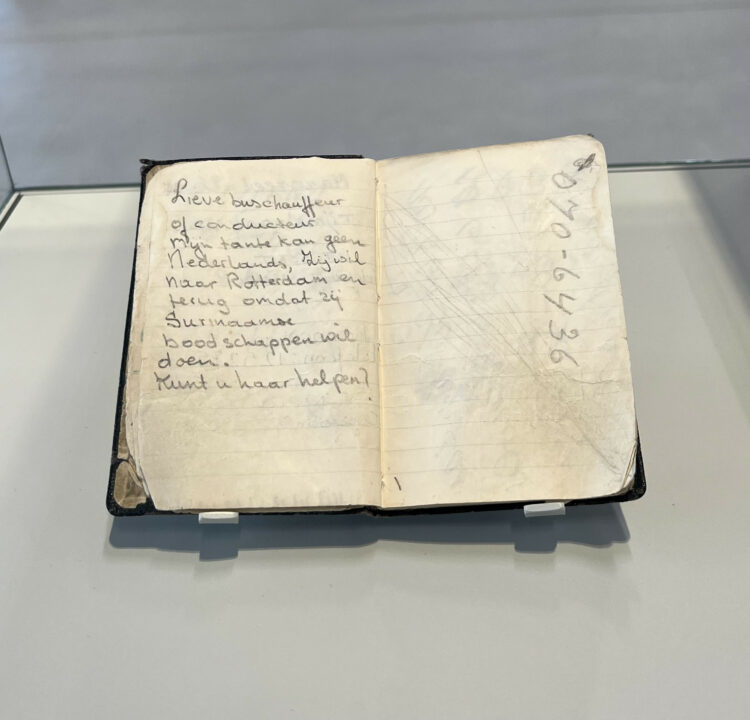 Lieve buschauffeur
of conducteur
mijn tante kan geen
Nederlands, Zij wil
naar Rotterdam en
terug omdat zij
Surinaamse
boodschappen wil
doen.
Kunt u haar helpen?
070-6436